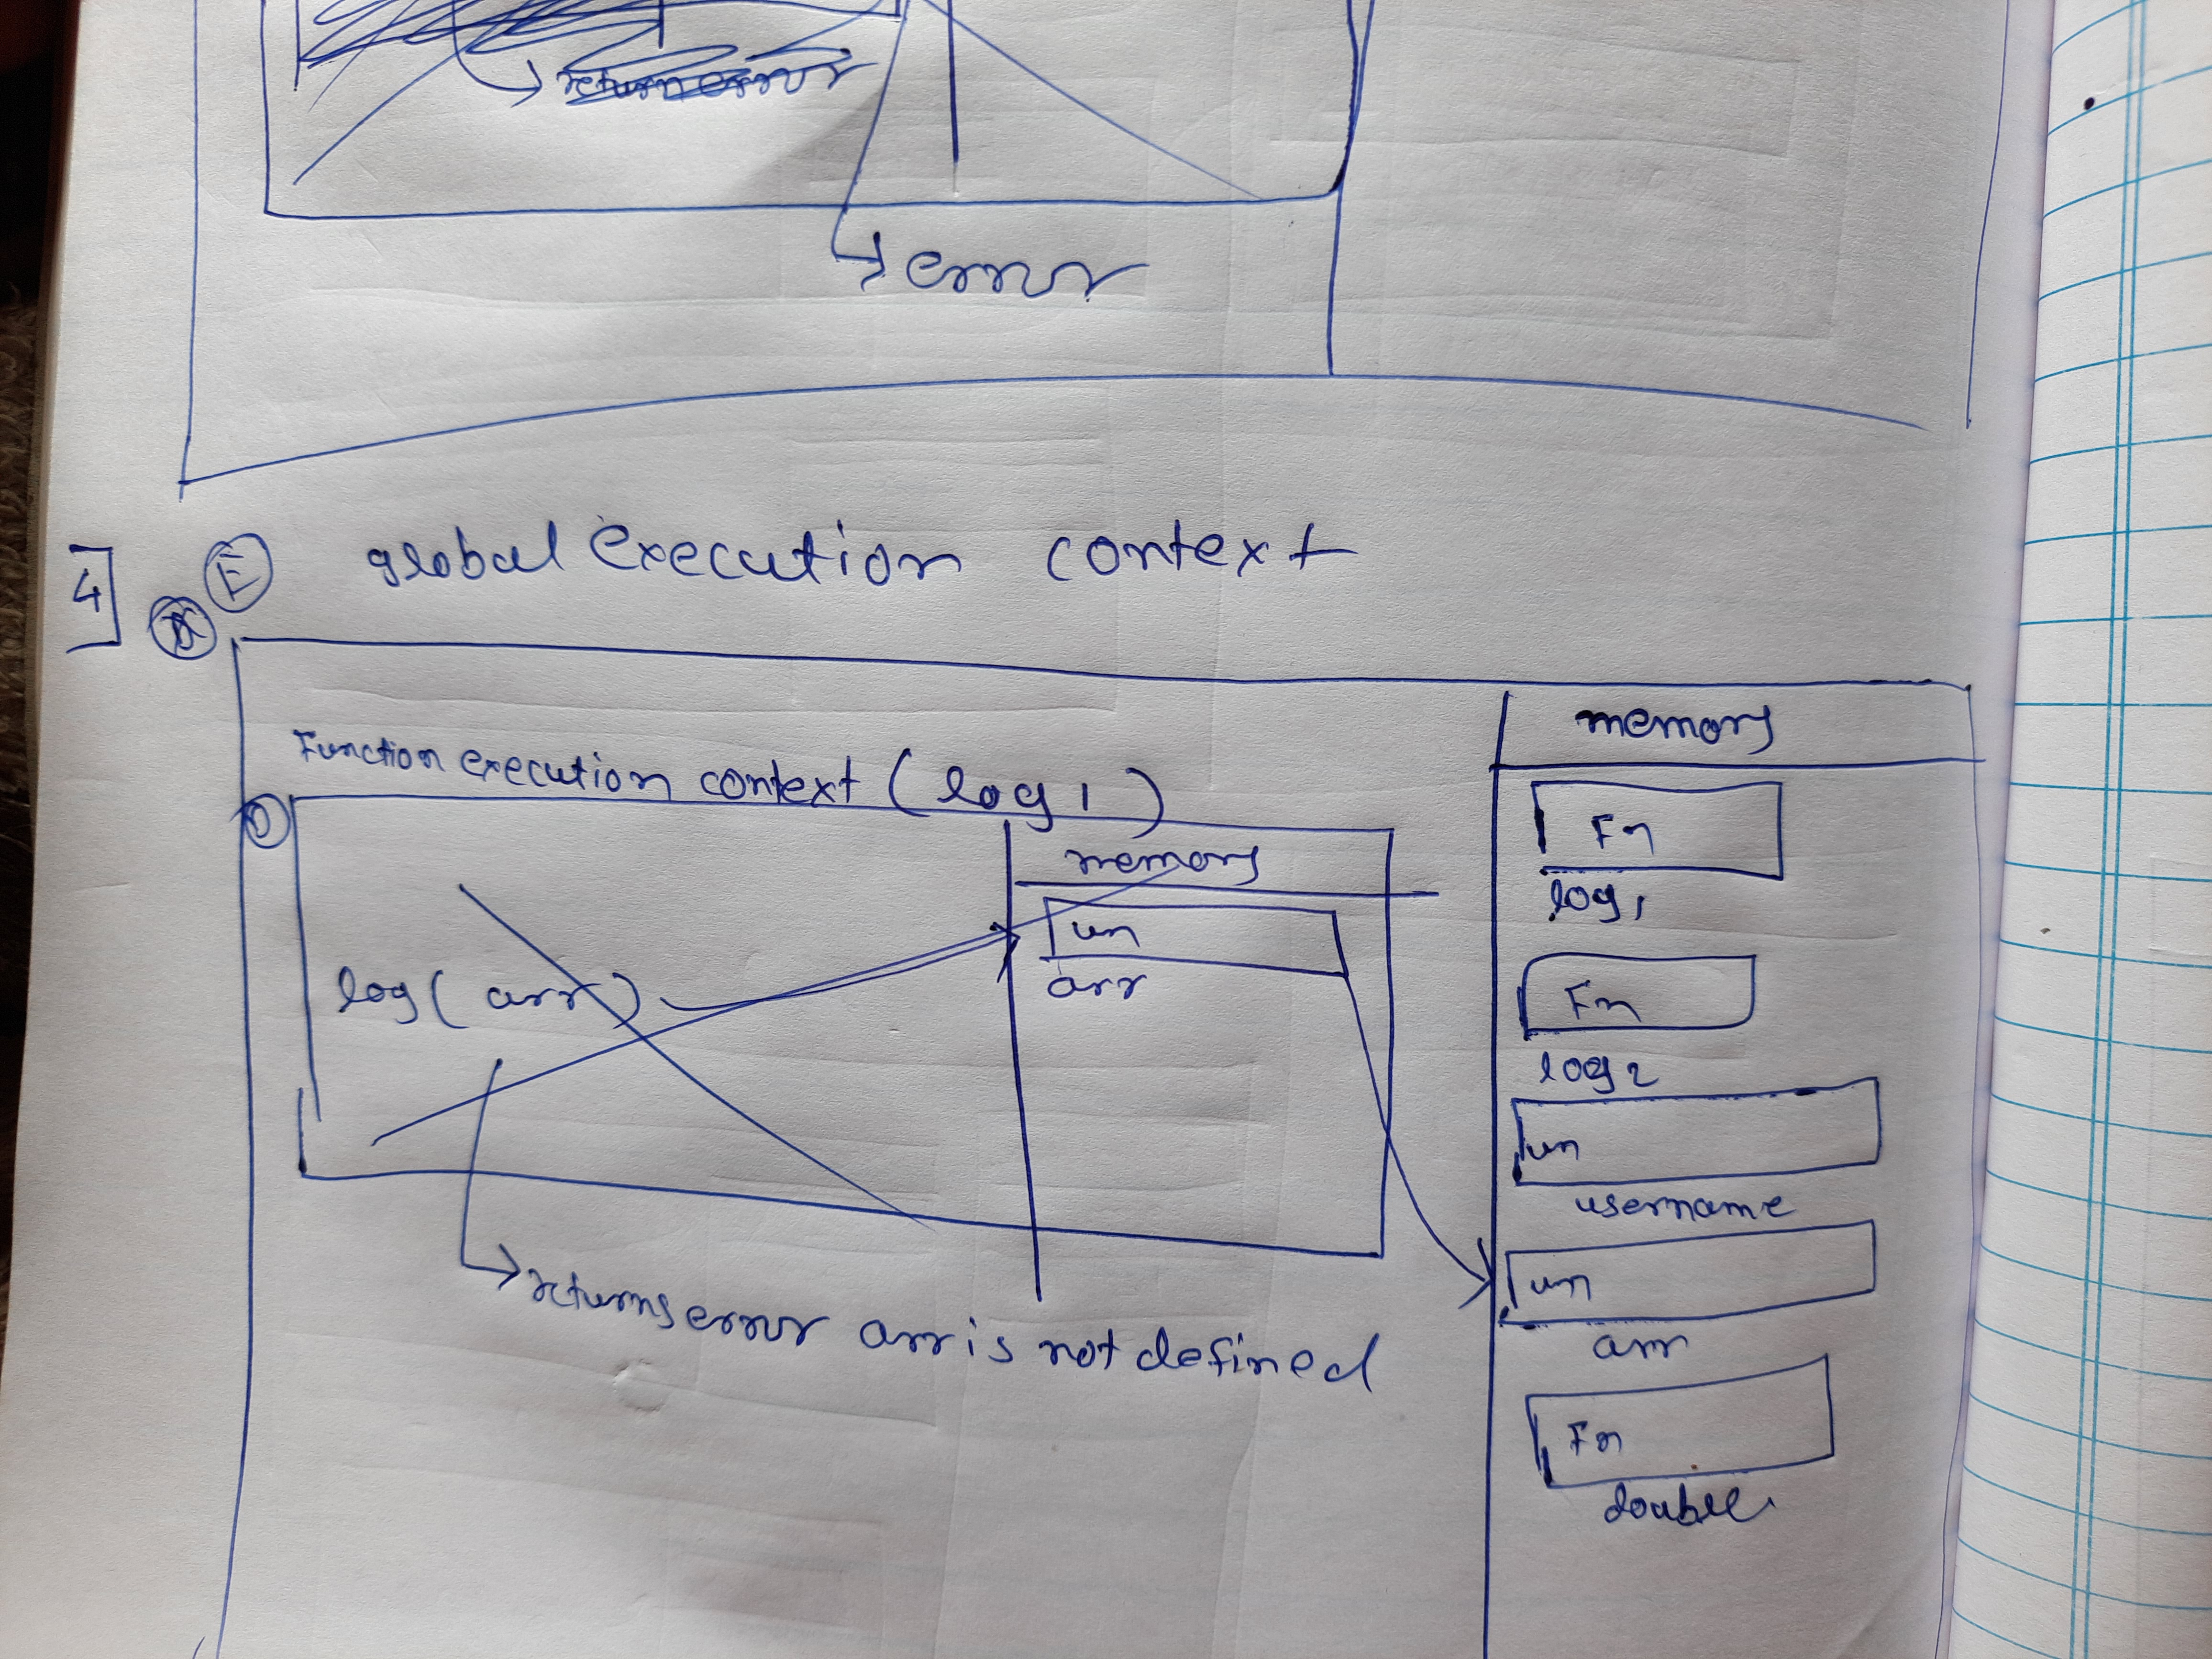 error
4
E
global execution context
Function execution context (log1)
memory
un
arr
log(arr)
returns error arr is not defined
memory
Fn
log1
Fn
log2
un
username
un
arr
Fn
double